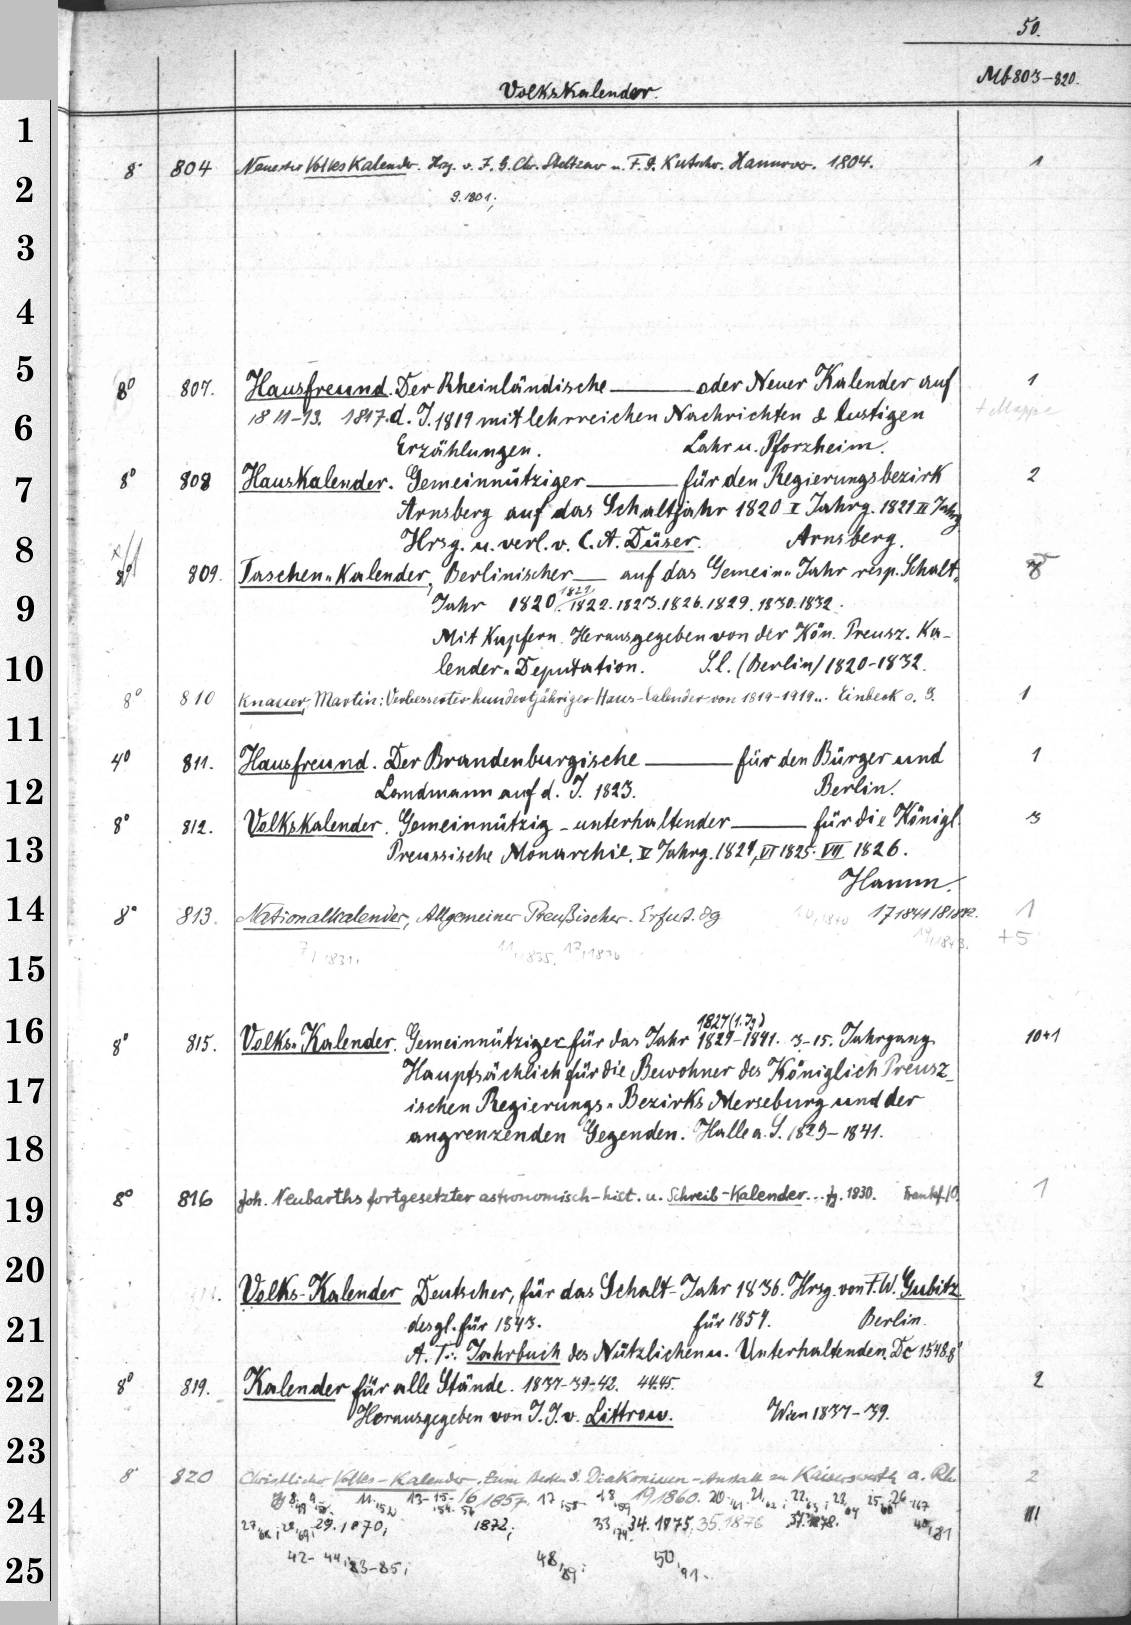 50.
Volkskalender.
Mb 803-820.
1
8° 804 Neuester Volkskalender. Hrg. v. F. G. Chr. u. F. G. Hannover. 1804. 1
2
9. 1801;
3
4
5
8° 807. Hausfreund. Der Rheinländische ——— oder Neuer Kalender auf 1
1811-13. 1817. d. J. 1819 mit lehrreichen Nachrichten & lustigen + Mappe
6
Erzählungen. Lahr u. Pforzheim.
8° 808 Hauskalender. Gemeinnütziger ——— für den Regierungsbezirk 2
7
Arnsberg auf das Schaltjahr 1820 I Jahrg. 1821 II Jahrg
8
Hrsg. u. verl. v. C. A. Düser. Arnsberg.
8° 809. Taschen-Kalender, Berlinischer — auf das Gemein-Jahr resp. Schalt-
1821
9
Jahr 1820. 1822. 1823. 1826. 1829. 1830. 1832.
Mit Kupfern. Herausgegeben von der Kön. Preusz. Ka-
10
lender-Deputation. S. l. (Berlin) 1820-1832.
8° 810 Knauer, Martin: Verbesserter hundertjähriger Haus-Calender von 1819-1919... Einbeck o. J. 1
11
4° 811. Hausfreund. Der Brandenburgische ——— für den Bürger und 1
12
Landmann auf d. J. 1823. Berlin.
8° 812. Volkskalender. Gemeinnützig-unterhaltender ——— für die Königl. 3
13
Preussische Monarchie. V Jahrg. 1824, VI 1825. VII 1826.
Hamm.
14
8° 813. Nationalkalender, Allgemeiner Preußischer. Erfurt. Jg 17 1841 18 1842. 1
19, 1843. +5
7, 1831. 11, 1835. 12, 1836
15
1827 (1. Jg)
16
8° 815. Volks-Kalender. Gemeinnütziger für das Jahr 1829-1841. 3-15. Jahrgang. 10+1
Hauptsächlich für die Bewohner des Königlich Preusz-
17
ischen Regierungs-Bezirks Merseburg und der
18
angrenzenden Gegenden. Halle a. S. 1829-1841.
19
8° 816 Joh. Neubarths fortgesetzter astronomisch-hist. u. Schreib-Kalender... Jg. 1830. Frankf./O. 1
20
Volks-Kalender Deutscher, für das Schalt-Jahr 1836. Hrsg. von F. W. Gubitz
21
desgl. für 1843. für 1854. Berlin.
A. T.: Jahrbuch des Nützlichen u. Unterhaltenden. Dc 1548. 8°
22
8° 819. Kalender für alle Stände. 1837-39-42. 44.45. 2
Herausgegeben von J. J. v. Littrow. Wien 1837-39.
23
8° 820 Christlicher Volks-Kalender. Zum Besten d. Diakonissen-Anstalt zu Kaiserswerth a. Rh. 2
24
16 1857. 17, 58. 18, 59 19 1860. 20, 61. 21, 62; 22, 63; 23, 64 III
27, 68; 28, 69; 29. 1870; 1872; 33, 74. 34. 1875; 35. 1876 37. 1878. 40, 81
25
42-44, 83-85; 48, 89; 50, 91.